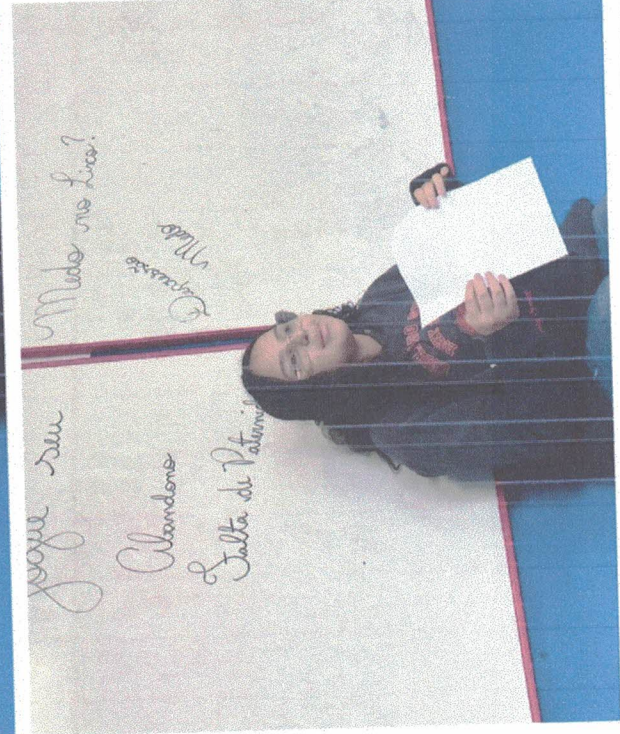 Jogue seu Medo no Lixo?
Abandono
Falta de Paternid
Depressão
Medo